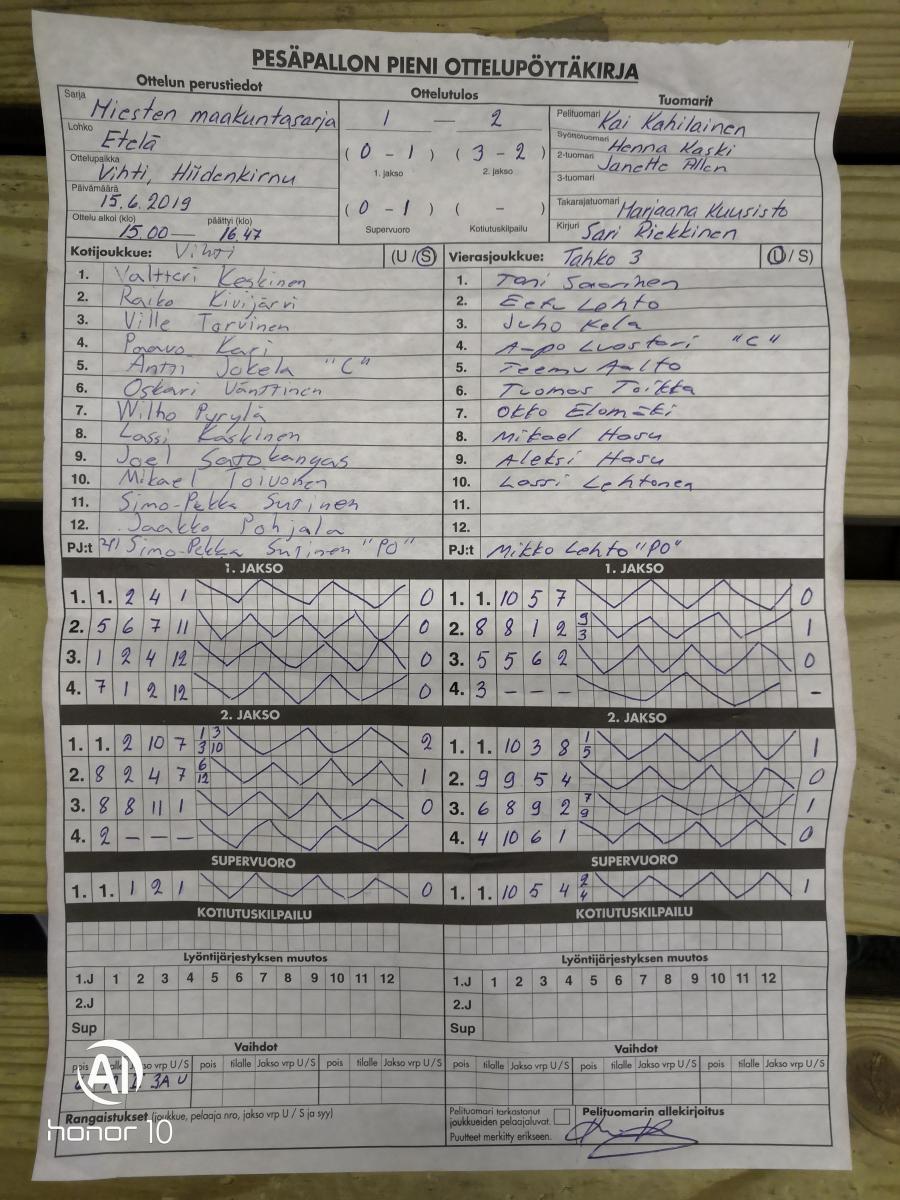 PESÄPALLON PIENI OTTELUPÖYTÄKIRJA
Ottelun perustiedot
Ottelutulos
Tuomarit
Sarja Miesten maakuntasarja
Lohko Etelä
Ottelupaikka Vihti, Hiidenkirnu
Päivämäärä 15.6.2019
Ottelu alkoi (klo) 15.00 — päättyi (klo) 16.47
1 — 2
( 0 - 1 ) ( 3 - 2 )
1. jakso 2. jakso
( 0 - 1 ) ( - )
Supervuoro Kotiutuskilpailu
Pelituomari Kai Kahilainen
Syöttötuomari Henna Kaski
2-tuomari Janette Allen
3-tuomari
Takarajatuomari Marjaana Kuusisto
Kirjuri Sari Riekkinen
Kotijoukkue: Vihti (U / S)
1. Valtteri Keskinen
2. Raiko Kivijärvi
3. Ville Torvinen
4. Paavo Kari
5. Antti Jokela "C"
6. Oskari Vänttinen
7. Wilho Pyrylä
8. Lassi Kaskinen
9. Joel Satokangas
10. Mikael Toivonen
11. Simo-Pekka Sutinen
12. Jaakko Pohjala
PJ:t Simo-Pekka Sutinen "PO"
Vierasjoukkue: Tahko 3 (U / S)
1. Toni Saarinen
2. Eetu Lehto
3. Juho Kela
4. A-po Luostari "C"
5. Teemu Aalto
6. Tuomas Toikka
7. Okko Elomäki
8. Mikael Hasu
9. Aleksi Hasu
10. Lassi Lehtonen
11.
12.
PJ:t Mikko Lehto "PO"
1. JAKSO
1. 1. 2 4 1 0
2. 5 6 7 11 0
3. 1 2 4 12 0
4. 7 1 2 12 0
1. JAKSO
1. 1. 10 5 7 0
2. 8 8 1 2 9 3 1
3. 5 5 6 2 0
4. 3 - - - -
2. JAKSO
1. 1. 2 10 7 1 3 3 10 2
2. 8 2 4 7 6 12 1
3. 8 8 11 1 0
4. 2 - - -
2. JAKSO
1. 1. 10 3 8 1 5 1
2. 9 9 5 4 0
3. 6 8 9 2 7 9 1
4. 4 10 6 1 0
SUPERVUORO
1. 1. 1 2 1 0
SUPERVUORO
1. 1. 10 5 4 2 4 1
KOTIUTUSKILPAILU
Lyöntijärjestyksen muutos
1.J 1 2 3 4 5 6 7 8 9 10 11 12
2.J
Sup
KOTIUTUSKILPAILU
Lyöntijärjestyksen muutos
1.J 1 2 3 4 5 6 7 8 9 10 11 12
2.J
Sup
Vaihdot
pois Jakso vrp U / S pois tilalle Jakso vrp U / S pois tilalle Jakso vrp U / S
3A U
Vaihdot
pois tilalle Jakso vrp U / S pois tilalle Jakso vrp U / S pois tilalle Jakso vrp U / S
Rangaistukset (joukkue, pelaaja nro, jakso vrp U / S ja syy)
Pelituomari tarkastanut
joukkueiden pelaajaluvat.
Puutteet merkitty erikseen.
Pelituomarin allekirjoitus
AI
honor 10